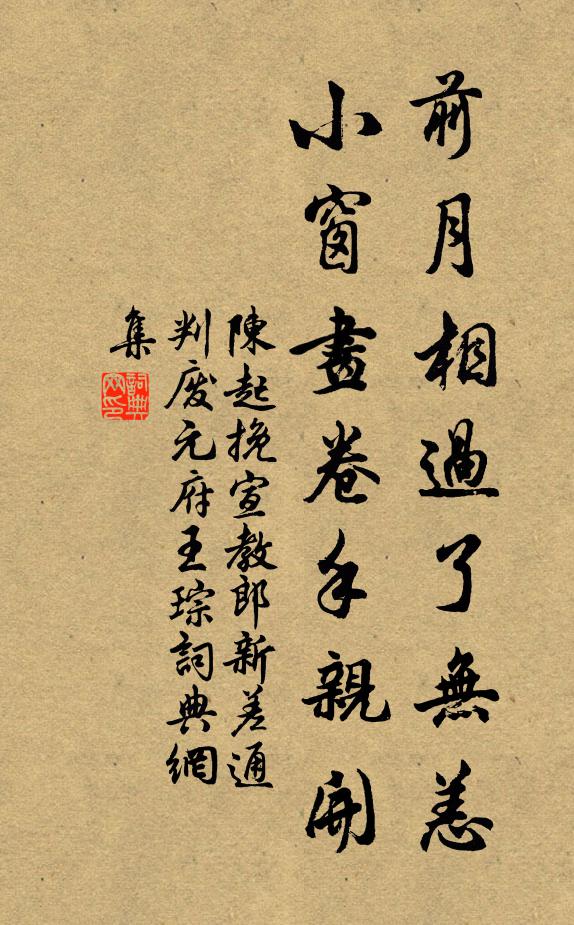 前月相過了無恙
小窗畫卷手親開
陳起挽宣教郎新差通
判廢元府王琮詞典網
集
詞典網印